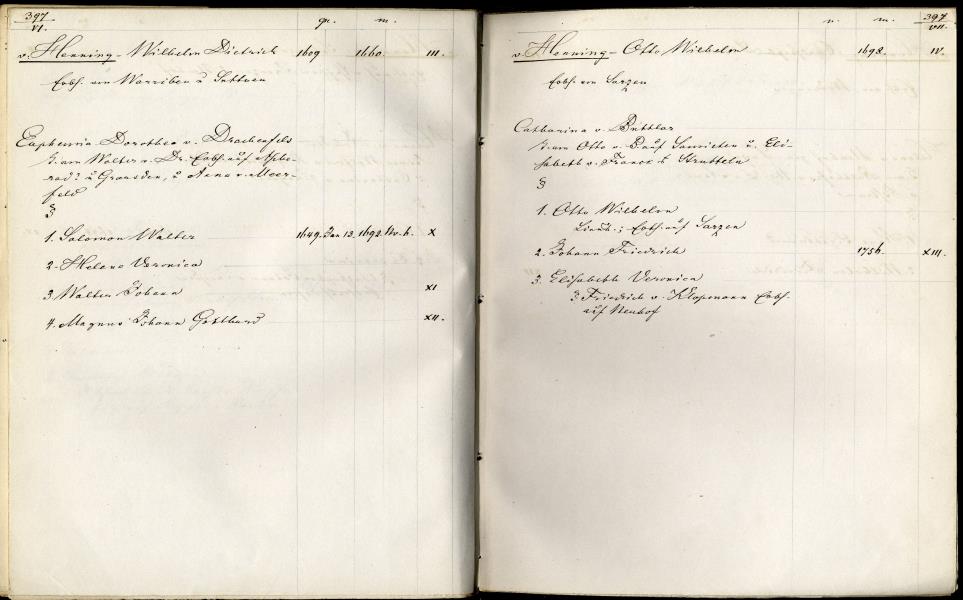 397
VI.
gr. m.
v. Henning - Wilhelm Dietrich 1609 1660 III.
Erbh. von Warriben u Suttuen
Euphemia Dorothea v. Drachenfels
v. Dr. Erbh. auf
u Grausden, u Anna v. Meer-
feld
1. Salomon Walter 1649. Jan 13. 1692. X
2. Helene Veronica
3. Walter Johann XI
4. Magnus Johann Gotthard XII.
397
VII.
m.
v. Henning - Otto Wilhelm 1698. IV.
Erbh. von Sarzen
Catharina v. Buttlar
Otto v. B auf u. Eli-
sabeth v. Franck
1. Otto Wilhelm
Erbh. auf Sarzen
2. Johann Friedrich 1756. XIII.
3. Elisabeth Veronica
Friedrich v. Klopmann Erbh.
auf Neuhof